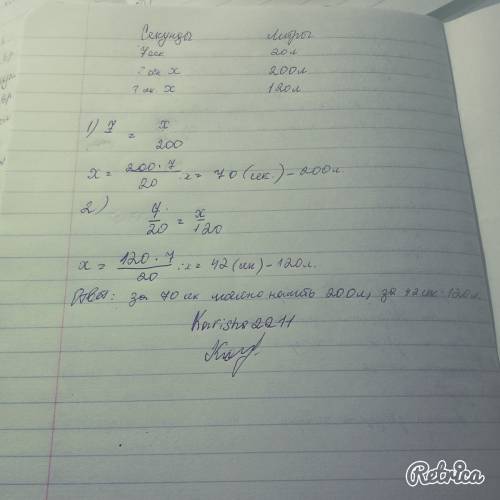 Секунды Литры
7 сек 20л
? сек X 200л
? сек. X 120л
1) 7 = x/200
x = 200·7/20 ; x = 70 (сек.) - 200л.
2) 7/20 = x/120
x = 120·7/20 ; x = 42 (сек) - 120л.
Ответ: за 70 сек можно налить 200л, за 42 сек - 120л.
Karisha2211
Retrica